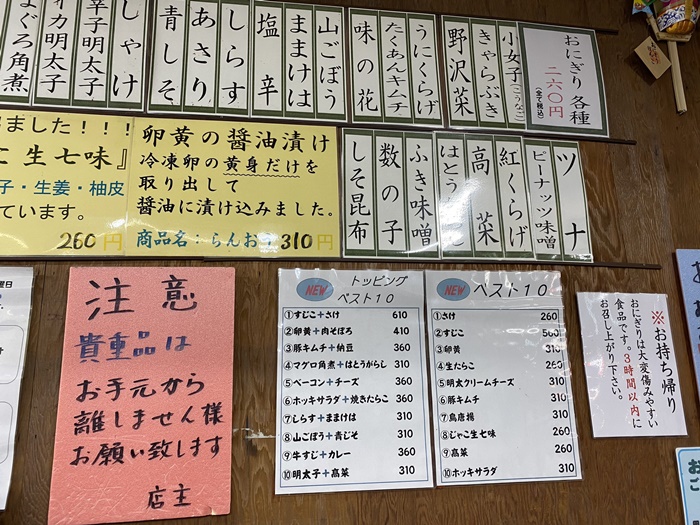 おにぎり 各種
二六〇円
(全て税込)
小女子(こうなご)
きゃらぶき
野沢菜
うにくらげ
たくあんキムチ
味の花
山ごぼう
ままけは
塩辛
しらす
あさり
青しそ
しゃけ
辛子明太子
イカ明太子
まぐろ角煮
ツナ
ピーナッツ味噌
紅くらげ
高菜
はとうがらし
ふき味噌
数の子
しそ昆布
ました!!!
生七味』
子・生姜・柚皮
ています。
260円
卵黄の醤油漬け
冷凍卵の黄身だけを
取り出して
醤油に漬け込みました。
商品名:らんおう 310円
注意
貴重品は
お手元から
離しません様
お願い致します
店主
NEW トッピング
ベスト10
①すじこ+さけ 610
②卵黄+肉そぼろ 410
③豚キムチ+納豆 360
④マグロ角煮+はとうがらし 310
⑤ベーコン+チーズ 360
⑥ホッキサラダ+焼きたらこ 360
⑦しらす+ままけは 310
⑧山ごぼう+青じそ 310
⑨牛すじ+カレー 360
⑩明太子+高菜 310
NEW ベスト10
①さけ 260
②すじこ 560
③卵黄 310
④生たらこ 260
⑤明太クリームチーズ 310
⑥豚キムチ 310
⑦鳥唐揚 310
⑧じゃこ生七味 260
⑨高菜 260
⑩ホッキサラダ 310
※お持ち帰り
おにぎりは大変傷みやすい
食品です。3時間以内に
お召し上がり下さい。